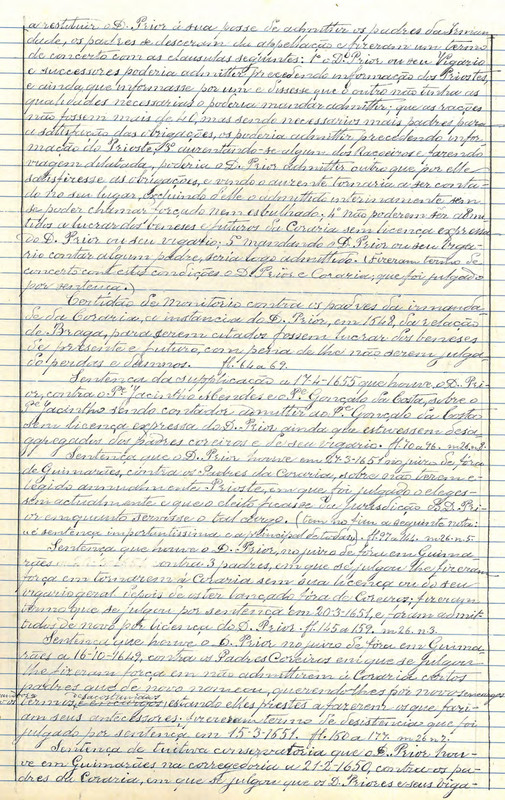 a restituir o D. Prior á sua posse de admittir os padres da Irman
dade, os padres se desceram da appellação e fizeram um termo
de concerto com as clausulas seguintes: 1ª o D. Prior ou seu vigario
e successores poderia admittir, precedendo informação dos Priostes,
e ainda que informasse por um e dissesse que o outro não tinha as
qualidades necessarias o poderia mandar admittir: que as rações
não fossem mais de 26, mas sendo necessarios mais padres para
a satisfação das obrigações, os poderia admittir precedendo infor
mação do Prioste, 3ª auzentando-se algum dos Raçoeiros e fazendo
viagem dilatada, poderia o D. Prior admittir outro que por elle
satisfizesse as obrigações, e vindo o auzente tornaria a ser conta
do no seu lugar, excluindo d'elle o admittido interinamente sem
se poder chamar forçado nem esbulhado; 4ª não poderem ser admit
tidos a lucrar dos benezes e futuros da Coraria sem licença expressa
do D. Prior ou seu vigario; 5ª mandando o D. Prior ou seu viga
rio contar algum padre, seria logo admittido. (fizeram termo de
concerto com estas condições o D. Prior e Coraria, que foi julgado
por sentença.)
Certidão de Monitorio contra os padres da irmanda
de da Coraria, a instancia do D. Prior, em 1548, da relação
de Braga, para serem citados fossem lucrar dos beneses
de presente e futuro, com pena de lhe não serem julga
do perdas e damnos. fl. 64 a 69.
Sentença da supplicação a 17-4-1655 que houve o D. Pri
or, contra o Pe Jacintho Mendes e Pe Gonçalo da Costa, sobre o
Pe Jacintho sendo contador admittir ao Pe Gonçalo da Costa
sem licença expressa do D. Prior ainda que estivessem desa
ggregados dos padres coreiros e de seu vigario. fl. 70 a 96. m. 26 n. 2.
Sentença que o D. Prior houve em 27-3-1651 no juizo de fóra
de Guimarães, contra os Padres da Coraria, sobre não terem e
legido annualmente Prioste, em que foi julgado o eleges-
sem actualmente e que o eleito ficasse da jurisdicção do D. Pri
or emquanto servisse o tal cargo. (Tem no fim a seguinte nota:
é sentença importantissima e a principal de todas). fl. 97 a 144. m. 26 n. 5
Sentença que houve o D. Prior, no juizo de fóra em Guima
rães contra 3 padres, em que se julgou lhe fizeram
força em tomarem á Coraria sem sua licença ou do seu
vigario geral depois de os ter lançado fóra de Coreiros; fizeram
termo que se julgou por sentença em 20-3-1651, e foram admit
tidos de novo por licença do D. Prior. fl. 145 a 159. m. 26 n. 3.
Sentença que houve o D. Prior no juizo de fóra em Guima
rães a 16-10-1649, contra os Padres Coreiros em que se julgou
lhe fizeram força em não admittirem á Coraria certos
padres que de novo nomeou, querendo-lhes por novos encargos
termos, e encargos estando elles prestes a fazerem os que fazi-
am seus antecessores: fizeram termo de desistencia que foi
julgado por sentença em 15-3-1651. fl. 160 a 177. m. 26 n. 2.
Sentença de tuitiva conservatoria que o D. Prior hou-
ve em Guimarães na corregedoria a 21-2-1650, contra os pa-
dres da Coraria, em que se julgou que os D. Priores e seus viga-